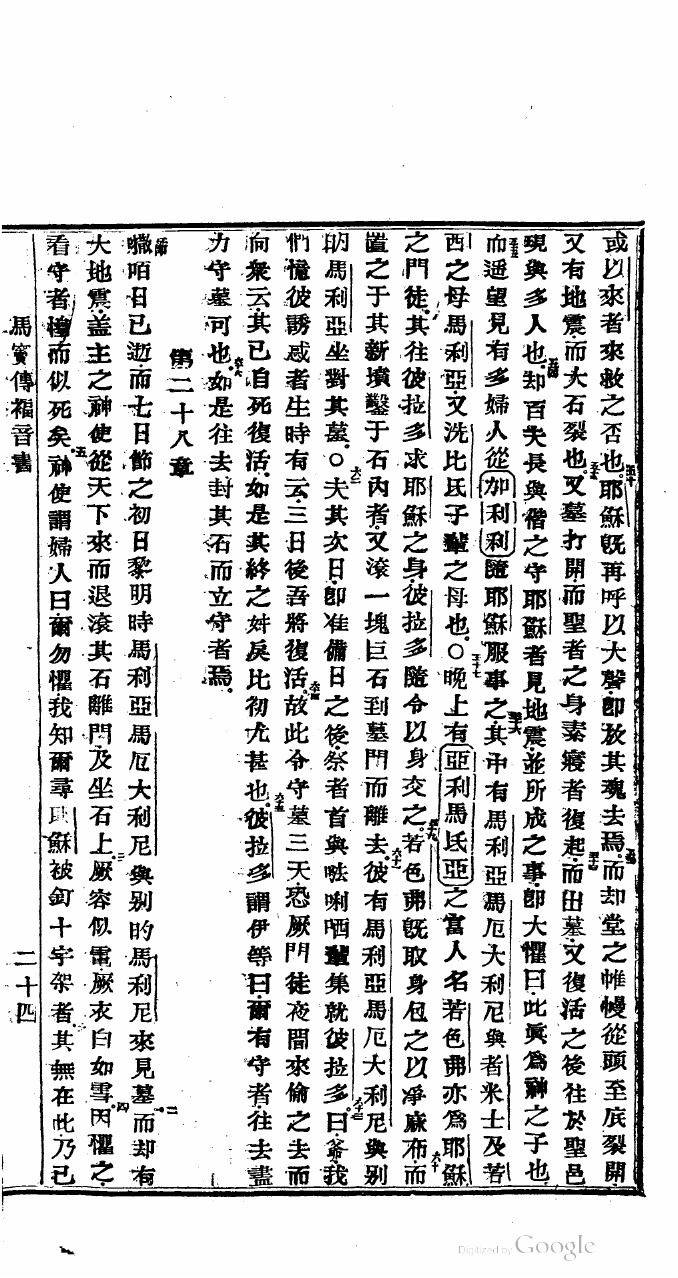 或以來者來救之否也。五十耶穌旣再呼以大聲卽放其魂去焉。五一而却堂之帷幔從頭至底裂開
又有地震而大石裂也。五二又墓打開而聖者之身素寢者復起。五三而出墓又復活之後往於聖邑
現與多人也。五四却百夫長與偕之守耶穌者見地震並所成之事卽大懼曰此眞爲神之子也
五五而遥望見有多婦人從加利利隨耶穌服事之。五六其中有馬利亞馬厄大利尼與者米士及若
西之母馬利亞又洗比氐子輩之母也。〇五七晚上有亞利馬氐亞之富人名若色弗亦爲耶穌
之門徒。五八其往彼拉多求耶穌之身。彼拉多隨令以身交之。五九若色弗旣取身包之以净蔴布六十而
置之于其新墳鑿于石內者。又滚一塊巨石到墓門而離去。六一彼有馬利亞馬厄大利尼與别
的馬利亞坐對其墓。〇六二夫其次日卽准備日之後祭者首與𠵽唎哂輩集就彼拉多六三曰爺我
們憶彼誘惑者生時有云三日後吾將復活。六四故此令守墓三天恐厥門徒夜間來偷之去而
向衆云其已自死復活。如是其終之舛戾比初尤甚也。六五彼拉多謂伊等曰爾有守者往去盡
力守墓可也。六六如是往去封其石而立守者焉。
第二十八章
嚫咟日已逝而七日節之初日黎明時馬利亞馬厄大利尼與别的馬利尼來見墓。二而却有
大地震蓋主之神使從天下來而退滚其石離門及坐石上三厥容似電厥衣白如雪。四因懼之
看守者慄而似死矣。五神使謂婦人曰爾勿懼我知爾尋耶穌被釘十字架者其無在此乃已
馬竇傳福音書
二十四
Digitized by Google